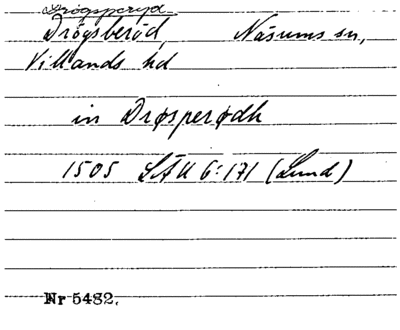 Drögsperyd
Drögsberöd Näsums sn,
Villands hd
in Drøsperødh
1505 LÄU 6:171 (Lund)
Nr 5482.